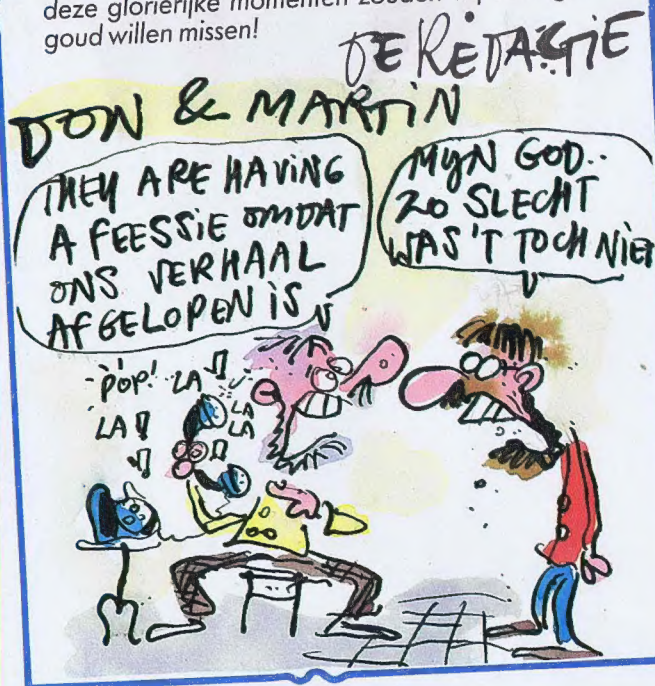 deze glorierijke momenten
goud willen missen!
DE REDACTIE
DON & MARTIN
THEY ARE HAVING
A FEESSIE OMDAT
ONS VERHAAL
AFGELOPEN IS
MYN GOD..
ZO SLECHT
WAS'T TOCH NIET
POP! LA
LA
LA
LA